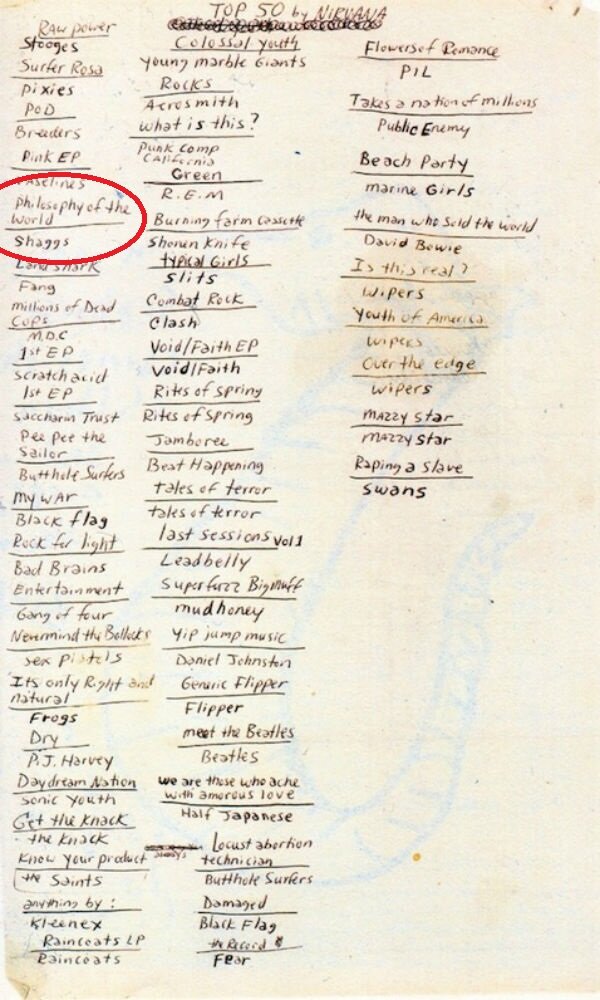 TOP 50 by NIRVANA
Raw power
Stooges
Surfer Rosa
Pixies
POD
Breeders
Pink EP
Vaselines
Philosophy of the
World
Shaggs
Land shark
Fang
millions of Dead
COPS
M.D.C
1st EP
scratch acid
1st EP
Saccharin Trust
Pee Pee the
Sailor
Butthole Surfers
My WAr
Black flag
Rock for light
Bad Brains
Entertainment
Gang of four
Nevermind the Bollocks
sex pistols
Its only Right and
natural
Frogs
Dry
P.J. Harvey
Daydream Nation
Sonic Youth
Get the KNACK
the KNACK
Know Your product
the Saints
anything by :
Kleenex
Raincoats LP
Raincoats
Colossal Youth
Young marble Giants
Rocks
Aerosmith
What is this?
Punk Comp
CALifornia
Green
R.E.M
Burning farm Cassette
Shonen Knife
typical Girls
Slits
Combat Rock
Clash
Void/Faith EP
Void/Faith
Rites of Spring
Rites of Spring
Jamboree
Beat Happening
tales of terror
tales of terror
last sessions Vol 1
Leadbelly
Superfuzz Bigmuff
mudhoney
Yip jump music
Daniel Johnston
Generic Flipper
Flipper
meet the Beatles
Beatles
we are those who ache
with amorous love
Half Japanese
Locust abortion
technician
Butthole Surfers
Damaged
Black Flag
the Record
Fear
Flowers of Romance
PIL
Takes a nation of millions
Public Enemy
Beach Party
marine Girls
the man who Sold the world
David Bowie
Is this real?
Wipers
Youth of America
Wipers
Over the edge
Wipers
MAZZY STAR
MAZZY STAR
Raping a Slave
Swans